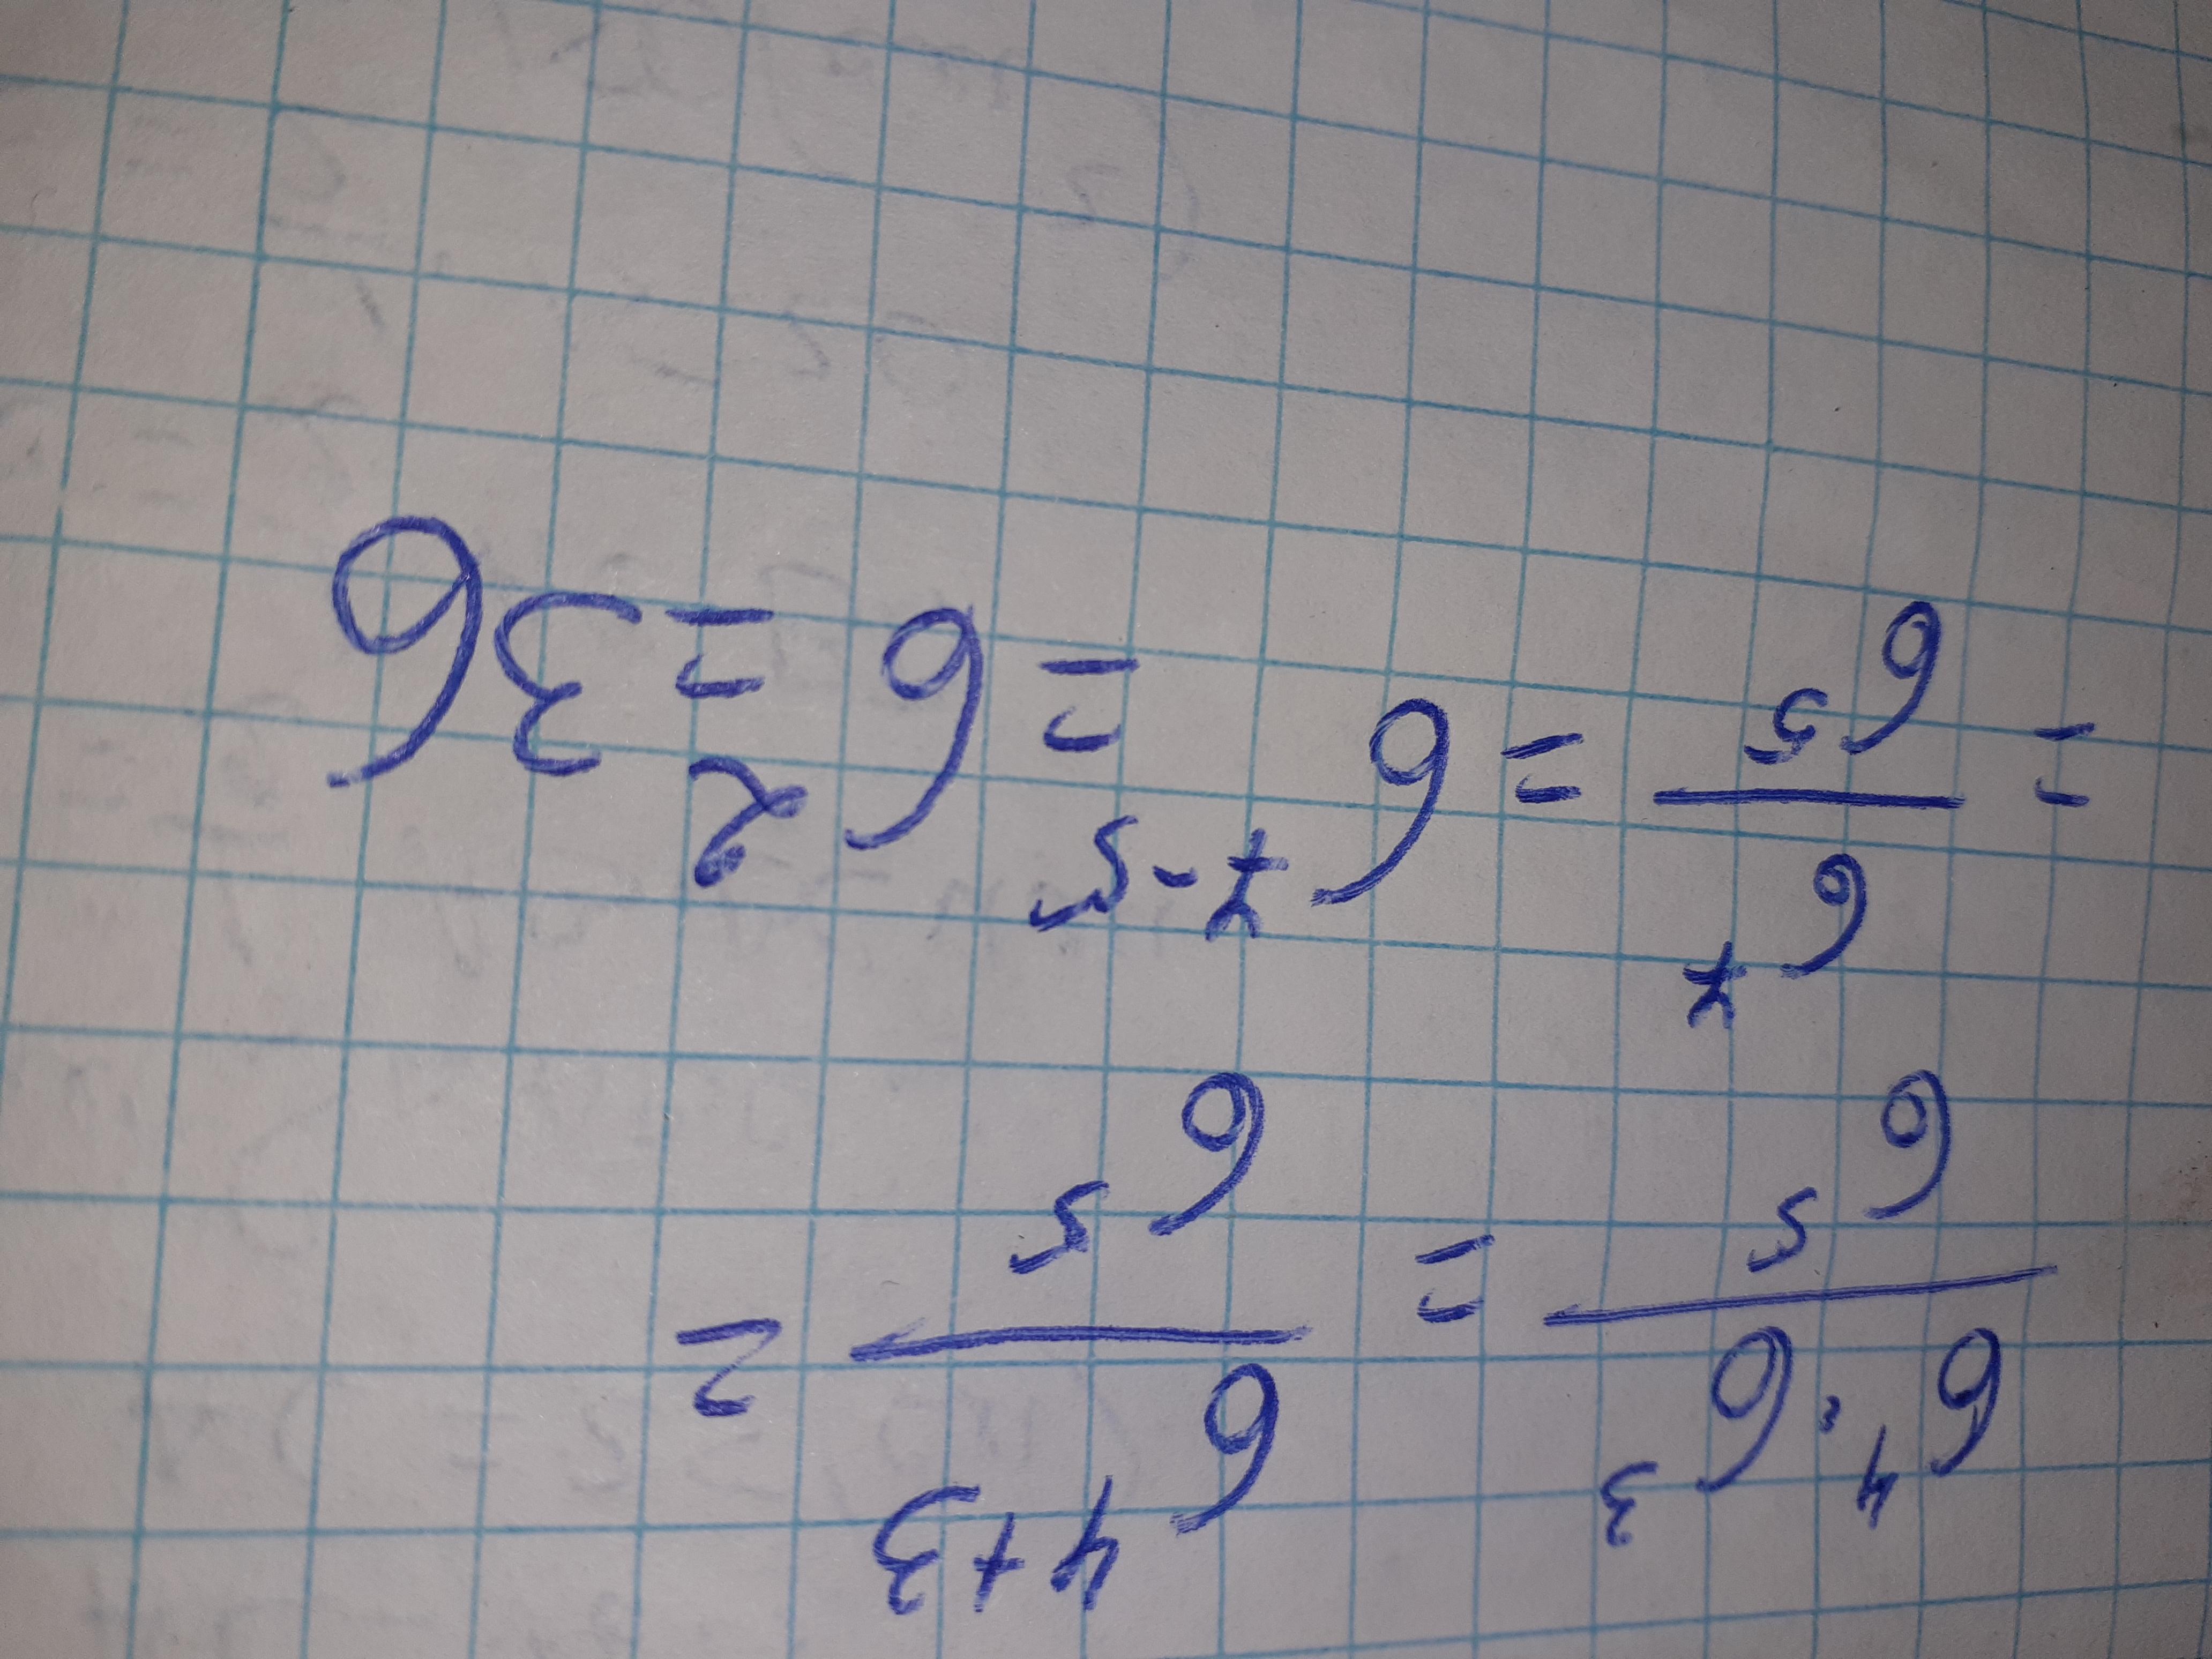 6⁴·6³/6⁵ = 6⁴⁺³/6⁵ =
= 6⁷/6⁵ = 6⁷⁻⁵ = 6² = 36